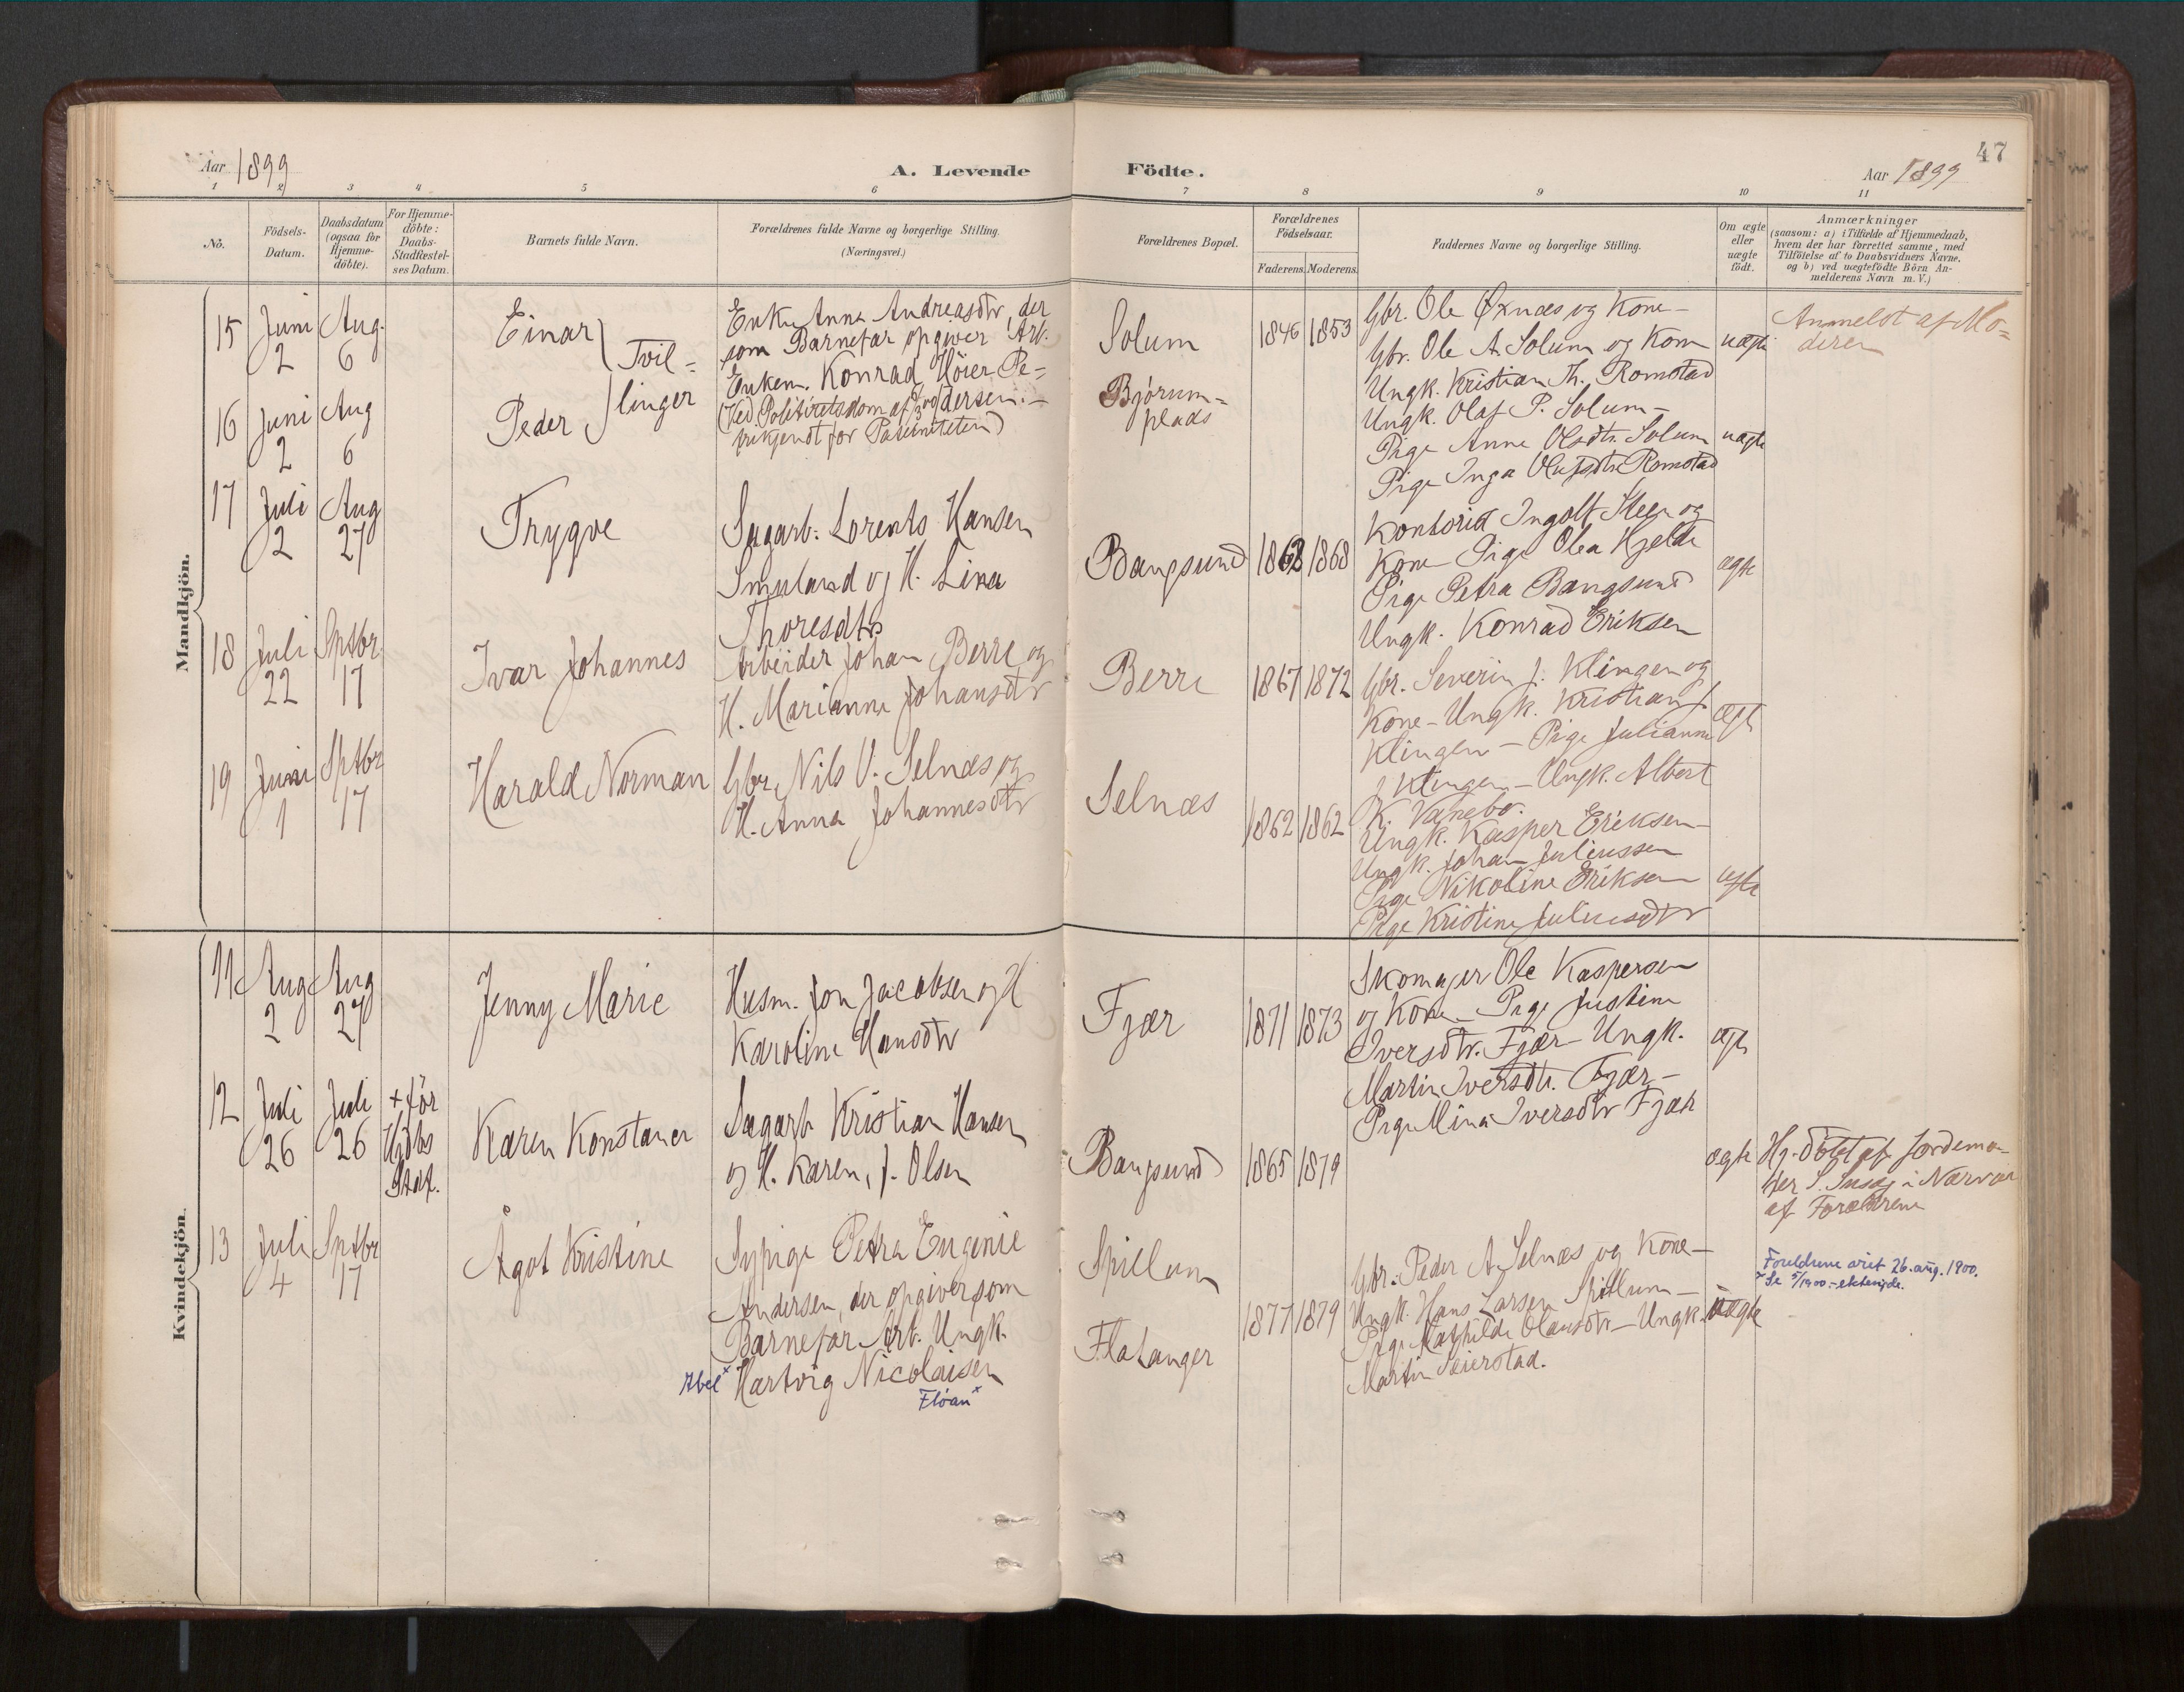 47
Aar 1899
A. Levende Födte.
Aar 1899
1 2 3 4 5 6 7 8 9 10 11
No.
Födsels-
Datum.
Daabsdatum
(ogsaa for
Hjemme-
döbte).
For Hjemme-
döbte:
Daabs-
Stadfæstel-
ses Datum.
Barnets fulde Navn.
Forældrenes fulde Navne og borgerlige Stilling.
(Næringsvei.)
Forældrenes Bopæl.
Forældrenes
Födselsaar.
Faderens. Moderens.
Faddernes Navne og borgerlige Stilling.
Om ægte
eller
uægte
födt.
Anmærkninger
(saasom: a) i Tilfælde af Hjemmedaab,
hvem der har forrettet samme, med
Tilföielse af to Daabsvidners Navne,
og b) ved uægtefödte Börn An-
melderens Navn m. V.)
Mandkjön.
15
Juni
2
Aug.
6
Einar
Tvil-
linger
16
Juni
2
Aug
6
Peder
Enke Anna Andreasdtr, der
som Barnefar opgiver Arb.
Enkem. Konrad Höier Pe-
dersen.-
(Ved Politiretsdom af
frikjendt for Paterniteten)
Solum
Björum-
plads
1846 1853
Gbr. Ole Øxnæs og Kone-
Gbr. Ole A. Solum og Kone
Ungk. Kristian Th. Romstad
Ungk. Olaf P. Solum-
Pige Anne Olsdtr. Solum
Pige Inga Olufsdtr. Romstad
uægte
uægte
Anmeldt af Mo-
deren
17
Juli
2
Aug
27
Trygve
Sagarb. Lorents Hansen
Smuland og H. Lina
Thoresdtr
Bangsund
1868 1868
Kontorist Ingolf Steen og
Kone Pige Olea Hjelde
Pige Petra Bangsund
Ungk. Konrad Eriksen
ægte
18
Juli
22
Sptbr.
17
Ivar Johannes
Arbeider Johan Berre og
H. Marianne Johansdtr
Berre
1867 1872
Gbr. Severin J. Klingen og
Kone - Ungk. Kristian J.
Klingen - Pige Julianne
J Klingen - Ungk. Albert
K. Vanebo.
ægte
19
Juni
1
Sptbr
17
Harald Norman
Gbr Nils V. Selnæs og
H. Anna Johannesdtr
Selnæs
1862 1862
Ungk. Kasper Eriksen-
Ungk. Johan Juliussen
Pige Nikoline Eriksen
Pige Kristine Juliusdtr
ægte
Kvindekjön.
11
Aug
2
Aug
27
Jenny Marie
Husm. Jon Jacobsen og H
Karoline Hansdtr
Fjær
1871 1873
Skomager Ole Kaspersen
og Kone - Pige Justine
Iversdtr. Fjær - Ungk.
Martin Iversdtr. Fjær-
Pige Mina Iversdtr Fjær
ægte
12
Juli
26
Juli
26
+ för
Hjdbs
Staf.
Karen Konstance
Sagarb Kristian Hansen
og H. Karen, f. Olsen
Bangsund
1865 1879
ægte
Hj. döbt af Jordemo-
der S. i Nærvær
af Forældrene
13
Juli
4
Sptbr
17
Ågot Kristine
Sypige Petra Eugenie
Andersen, der opgiver som
Barnefar Arb. Ungk.
Abel x Hartvig Nicolaisen
Flöan x
Spillum
Flatanger
1877 1879
Gbr. Peder A. Selnæs og Kone-
Ungk. Hans Larsen Spillum-
Pige Mathilde Olausdtr - Ungk.
Martin Seierstad.
uægte
Foreldrene viet 26. aug. 1900.
Se 5/1900.- ektevigde.